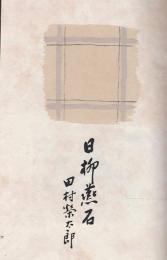 日柳燕石
田村榮太郎